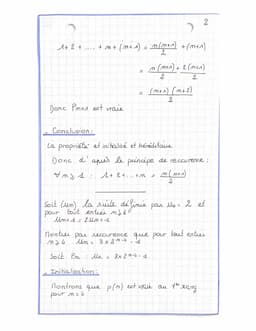 2
1+2+ .... + n + (n+1) = n(n+1)/2 + (n+1)
= n(n+1) + 2(n+1)/2
= (n+1)(n+2)/2
Donc Pn+1 est vraie
. Conclusion:
La propriété est initialisé et héréditaire
Donc d'après le principe de recurrence:
∀n≥1 : 1+2+...+n = n(n+1)/2
Soit (Un) la suite définie par U1 = 2 et
pour tout entier n≥1
Un+1 = 2Un-1
Montrer par recurrence que pour tout entier
Soit Pn :
. Initialisation:
Montrons que p(n) est vraie au 1er rang
pour n=1